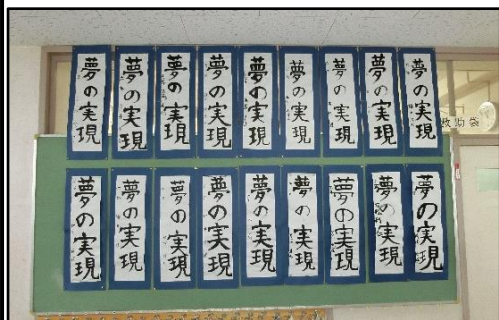 夢の実現
夢の実現
夢の実現
夢の実現
夢の実現
夢の実現
夢の実現
夢の実現
夢の実現
救助袋
夢の実現
夢の実現
夢の実現
夢の実現
夢の実現
夢の実現
夢の実現
夢の実現
夢の実現